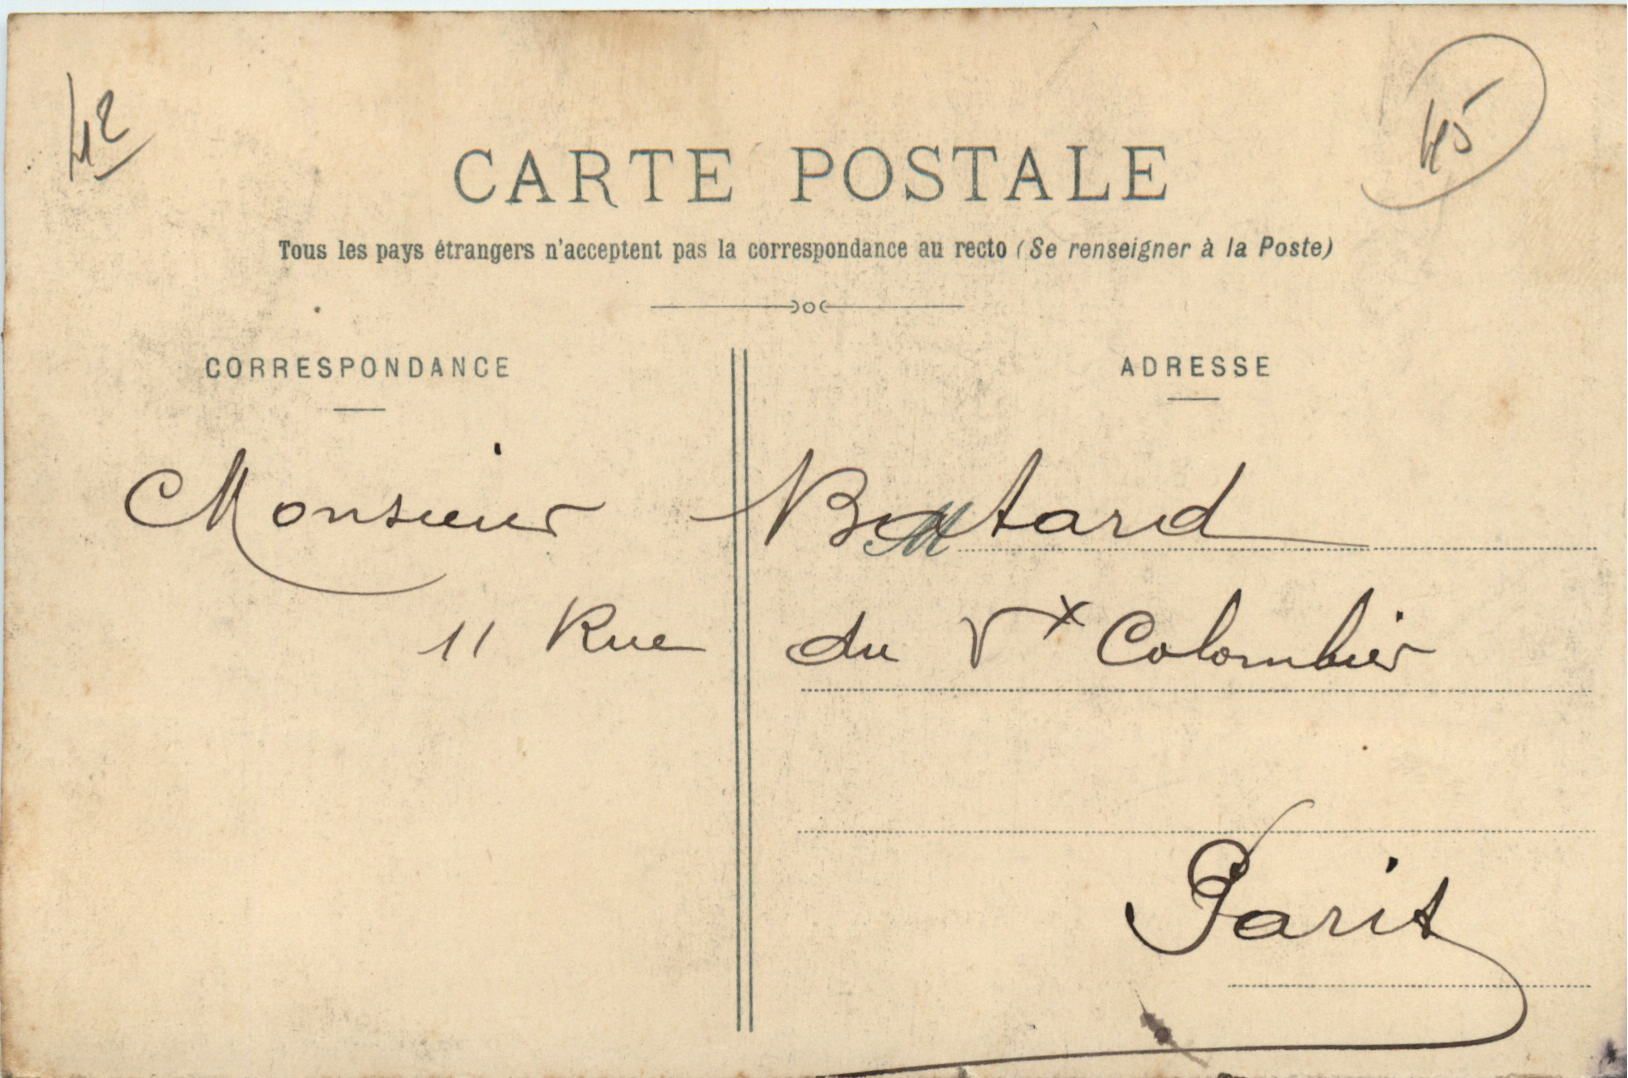 42
45
CARTE POSTALE
Tous les pays étrangers n'acceptent pas la correspondance au recto (Se renseigner à la Poste)
CORRESPONDANCE
ADRESSE
Monsieur Batard
11 Rue du Vx Colombier
Paris